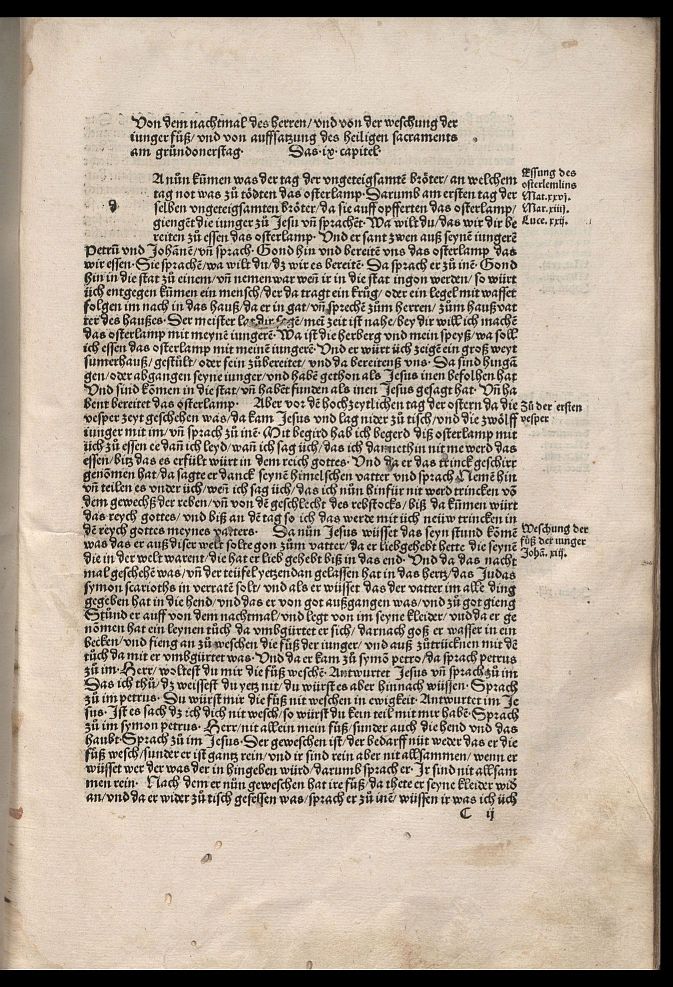 Von dem nachtmal des herren/ vnd von der weschung der
iunger füß/ vnd von auffsatzung des heiligen sacraments
am gründonerstag. Das .ix. capitel.
A nůn kůmen was der tag der vngeteigsamtē brôter/ an welchem
tag not was zů tôdten das osterlamp. Darumb am ersten tag der
d
selben vngeteigsamten brôter/ da sie auff opfferten das osterlamp/
giengēt die iunger zů Jesu vñ sprachēt. Wa wilt du/ das wir dir be
reiten zů essen das osterlamp. Vnd er sant zwen auß seynē iungerē
Petrū vnd Johānē/ vñ sprach. Gond hin vnd bereitē vns das osterlamp das
wir essen. Sie sprachē/ wa wilt du/ dz wir es bereitē. Da sprach er zů inē. Gond
hin in die stat zů einem/ vñ nemen war wen ir in die stat ingon werden/ so würt
üch entgegen kůmen ein mensch/ der da tragt ein krůg/ oder ein legel mit wasser
folgen im nach in das hauß/ da er in gat/ vñ sprechē zům herren/ zům haußvat
ter des haußes. Der meister laßt dir sagē/ mein zeit ist nahe/ bey dir will ich machē
das osterlamp mit meynē iungerē. Wa ist die herberg vnd mein speyß/ wa soll
ich essen das osterlamp mit meinē iungerē. Vnd er würt üch zeigē ein groß weyt
sumerhauß/ gestült/ oder fein zůbereitet/ vnd da bereitenß vns. Da sind hinga
gen/ oder abgangen seyne iunger/ vnd habē gethon als Jesus inen befolhen hat
Vnd sind kômen in die stat/ vñ haben funden als inen Jesus gesagt hat. Vñ ha
bent bereitet das osterlamp. Aber vor dē hochzeytlichen tag der ostern da die
vesper zeyt geschehen was/ da kam Jesus vnd lag nider zů tisch/ vnd die zwôlff
iunger mit im/ vñ sprach zů inē. Mit begird hab ich begerd diß osterlamp mit
üch zů essen ee dañ ich leyd/ wañ ich sag üch/ das ich dannethin nit me werd das
essen/ bitz das es erfült würt in dem reich gottes. Vnd da er das trinck geschirr
genômen hat/ da sagte er danck seynē himelschen vatter vnd sprach. Nemē hin
vñ teilen es vnder üch/ wen ich sag üch/ das ich nůn hinfür nit werd trincken vō
dem gewechß der reben/ vñ von dē geschlecht des rebstocks/ biß da kůmen würt
das reych gottes/ vnd biß an dē tag so ich das werde mit üch neüw trincken in
dē reych gottes meynes vatters. Da nůn Jesus wüsset das seyn stund kômē
was das er auß diser welt solte gon zům vatter/ da er lieb gehebt hette die seynē
die in der welt warent/ die hat er lieb gehebt biß in das end. Vnd da das nacht
mal geschehē was/ vñ der teüfel yetzendan gelassen hat in das hertz/ das Judas
symon scarioths in verratē solt/ vnd als er wüsset das der vatter im alle ding
gegeben hat in die hend/ vnd das er von got außgangen was/ vnd zů got gieng
Stůnd er auff von dem nachtmal/ vnd legt von im seyne kleider/ vnd da er ge
nômen hat ein leynen tůch da vmbgürtet er sich/ darnach goß er wasser in ein
becken/ vnd fieng an zů weschen die füß der iunger/ vnd auß zütrücknen mit dē
tůch da mit er vmbgürtet was. Vnd da er kam zů symō petro/ da sprach petrus
zů im. Herr/ woltest du mir die füß weschē. Antwurtet Jesus vñ sprach zů im
Das ich thů/ dz weissest du yetz nit/ du würst es aber hinnach wüssen. Sprach
zů im petrus. Du würst mir die füß nit weschen in ewigkeit. Antwurtet im Je
sus. Ist es sach dz ich dich nit wesch/ so würst du kein teil mit mir habē. Sprach
zů im symon petrus. Herr/ nit allein mein füß/ sunder auch die hend vnd das
haubt. Sprach zů im Jesus. Der geweschen ist/ der bedarff nüt weder das er die
füß wesch/ sunder er ist gantz rein/ vnd ir sind rein aber nit allsammen/ wenn er
wüsset wer der was der in hingeben würd/ darumb sprach er. Ir sind nit allsam
men rein. Nach dem er nůn geweschen hat ire füß/ da thete er seyne kleider wid
an/ vnd da er wider zů tisch gesessen was/ sprach er zů inē/ wüssen ir was ich üch
C ij
Essung des
osterlemlins
Mat. xxvj.
Mar. xiiij.
Luce. xxij.
Zů der ersten
vesper
Weschung der
füß der iunger
Johā. xiij.